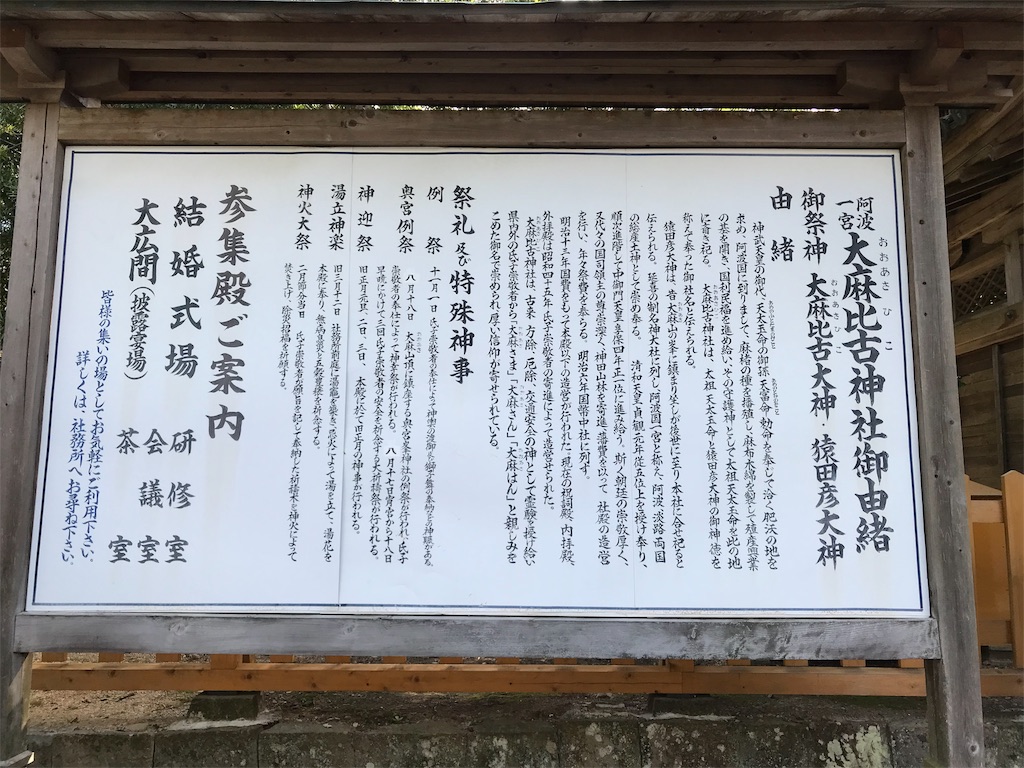 阿波一宮 大麻比古神社御由緒
おおあさひこ
御祭神 大麻比古大神・猿田彦大神
おおあさひこ
由緒
神武天皇の御代、天太玉命の御孫 天富命 勅命を奉じて洽く肥沃の地を
求め、阿波国に到りまして、麻楮の種を播殖し、麻布木綿を製して殖産興業
の基を開き、国利民福を進め給い、その守護神として太祖天太玉命を此の地
に斎き祀る。 大麻比古神社は、太祖 天太玉命と猿田彦大神の御神徳を
称えて奉った御社名と伝えられる。
猿田彦大神は、昔 大麻山の峯に鎮まり坐しが後世に至り本社に合せ祀ると
伝えられる。延喜の制名神大社に列し、阿波国一宮と称え、阿波、淡路両国
の総産土神として崇め奉る。 清和天皇貞観元年従五位上を授け奉り、
順次進階して中御門天皇享保四年正一位に進み給う。斯く朝廷の崇敬厚く、
又代々の国司領主の尊崇深く、神田山林を寄進、藩費を以って、社殿の造営
を行い、年々祭費を奉らる。明治六年国幣中社に列す。
明治十三年国費をもって本殿以下の造営が行われた。現在の祝詞殿、内拝殿、
外拝殿は昭和四十五年、氏子崇敬者の寄進によって造営せられた。
大麻比古神社は、古来、方除、厄除、交通安全の神として霊験を授け給い
県内外の氏子崇敬者から「大麻さま」「大麻さん」「大麻はん」と親しみを
こめた御名で崇められ、厚い信仰が寄せられている。
祭礼及び特殊神事
例祭 十一月一日 氏子崇敬者の奉仕により神輿の渡御、獅子舞の奉納などの神賑がある。
奥宮例祭 八月十八日 大麻山頂に鎮座する奥宮峯神社の例祭が行われ、氏子
崇敬者の奉仕によって神事祭が行われる。八月十七日宵宮から十八日
早暁にかけて三回氏子崇敬者の安全を祈念する大祈祷祭が行われる。
神迎祭 旧正月元旦、二日、三日、本殿に於て旧正月の神事が行われる。
湯立神楽 旧三月十二日 社務所前庭に湯竈を築き、忌火によって湯を立て、湯花を
本殿に奉り、無病息災と五穀豊穣を祈念する。
神火大祭 二月節分当日 氏子崇敬者が願旨を記して奉納した祈祷木を神火によって
焚き上げ、除災招福を祈願する。
参集殿ご案内
結婚式場 研修室
大広間（披露宴場） 会議室
茶室
皆様の集いの場としてお気軽にご利用下さい。
詳しくは、社務所へお尋ね下さい。